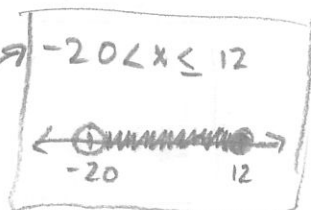 -20<x≤ 12
-20 12